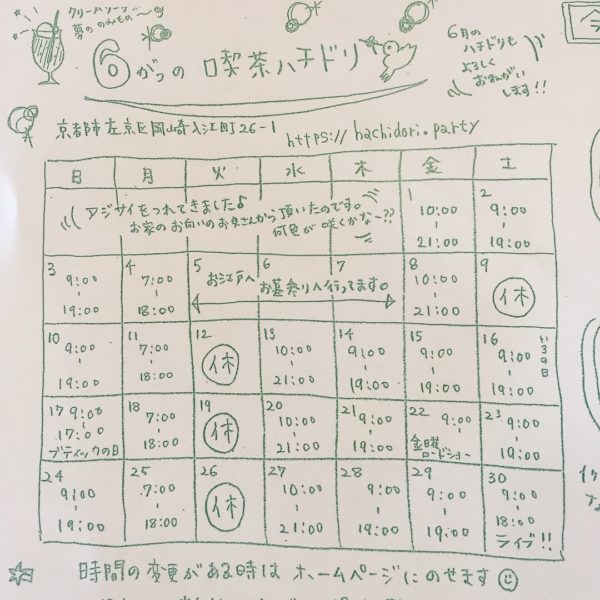 クリームソーダ
夢ののみもの〜
6がつの 喫茶ハチドリ
6月の
ハチドリも
よろしく
おねがい
します!!
京都市左京区岡崎入江町26-1
https://hachidori.party
日 月 火 水 木 金 土
アジサイをつれてきました♪
お家のお向いのお奥さんから頂いたのです。
何色が咲くかなー??
1 10:00-21:00
2 9:00-19:00
3 9:00-19:00
4 7:00-18:00
5 6 7
お江戸へ
お墓参りへ行ってます。
8 10:00-21:00
9 休
10 9:00-19:00
11 7:00-18:00
12 休
13 10:00-21:00
14 9:00-19:00
15 9:00-19:00
16 9:00-19:00
17 9:00-17:00 ブティックの日
18 7:00-18:00
19 休
20 10:00-21:00
21 9:00-19:00
22 9:00 金曜ロードショー
23 9:00-19:00
24 9:00-19:00
25 7:00-18:00
26 休
27 10:00-21:00
28 9:00-19:00
29 9:00-19:00
30 9:00-18:00 ライブ!!
時間の変更がある時はホームページにのせます